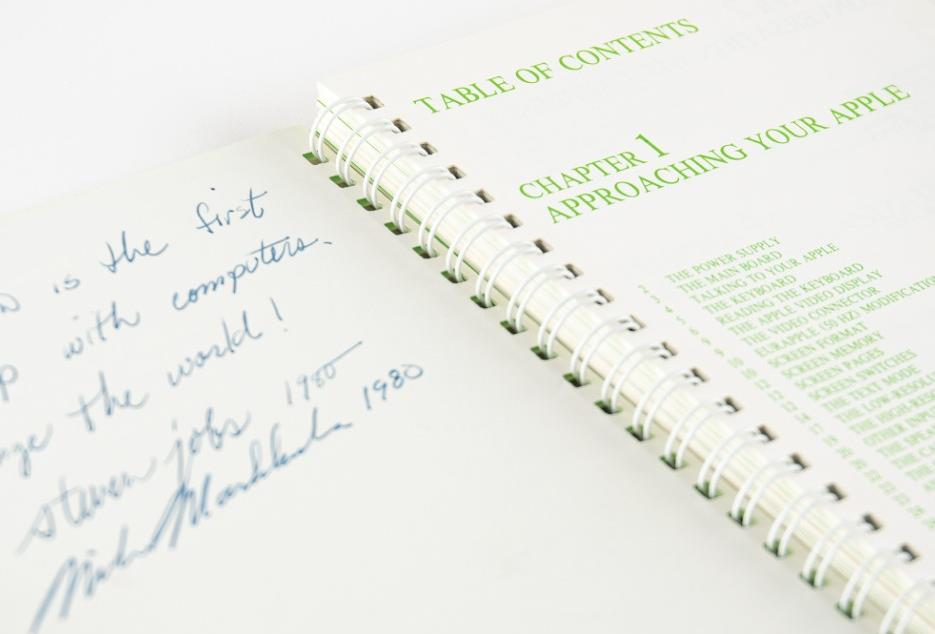 is the first
with computers.
the world!
steven jobs 1980
Mike Markkula 1980
TABLE OF CONTENTS
CHAPTER 1
APPROACHING YOUR APPLE
2 THE POWER SUPPLY
3 THE MAIN BOARD
4 TALKING TO YOUR APPLE
5 THE KEYBOARD
6 READING THE KEYBOARD
9 THE APPLE VIDEO DISPLAY
9 THE VIDEO CONNECTOR
10 EURAPPLE (50 HZ) MODIFICATION
12 SCREEN FORMAT
12 SCREEN MEMORY
12 SCREEN PAGES
12 SCREEN SWITCHES
14 THE TEXT MODE
THE LOW-RESOL
THE HIGH-RES
OTHER INPU
THE SPE
THE CA